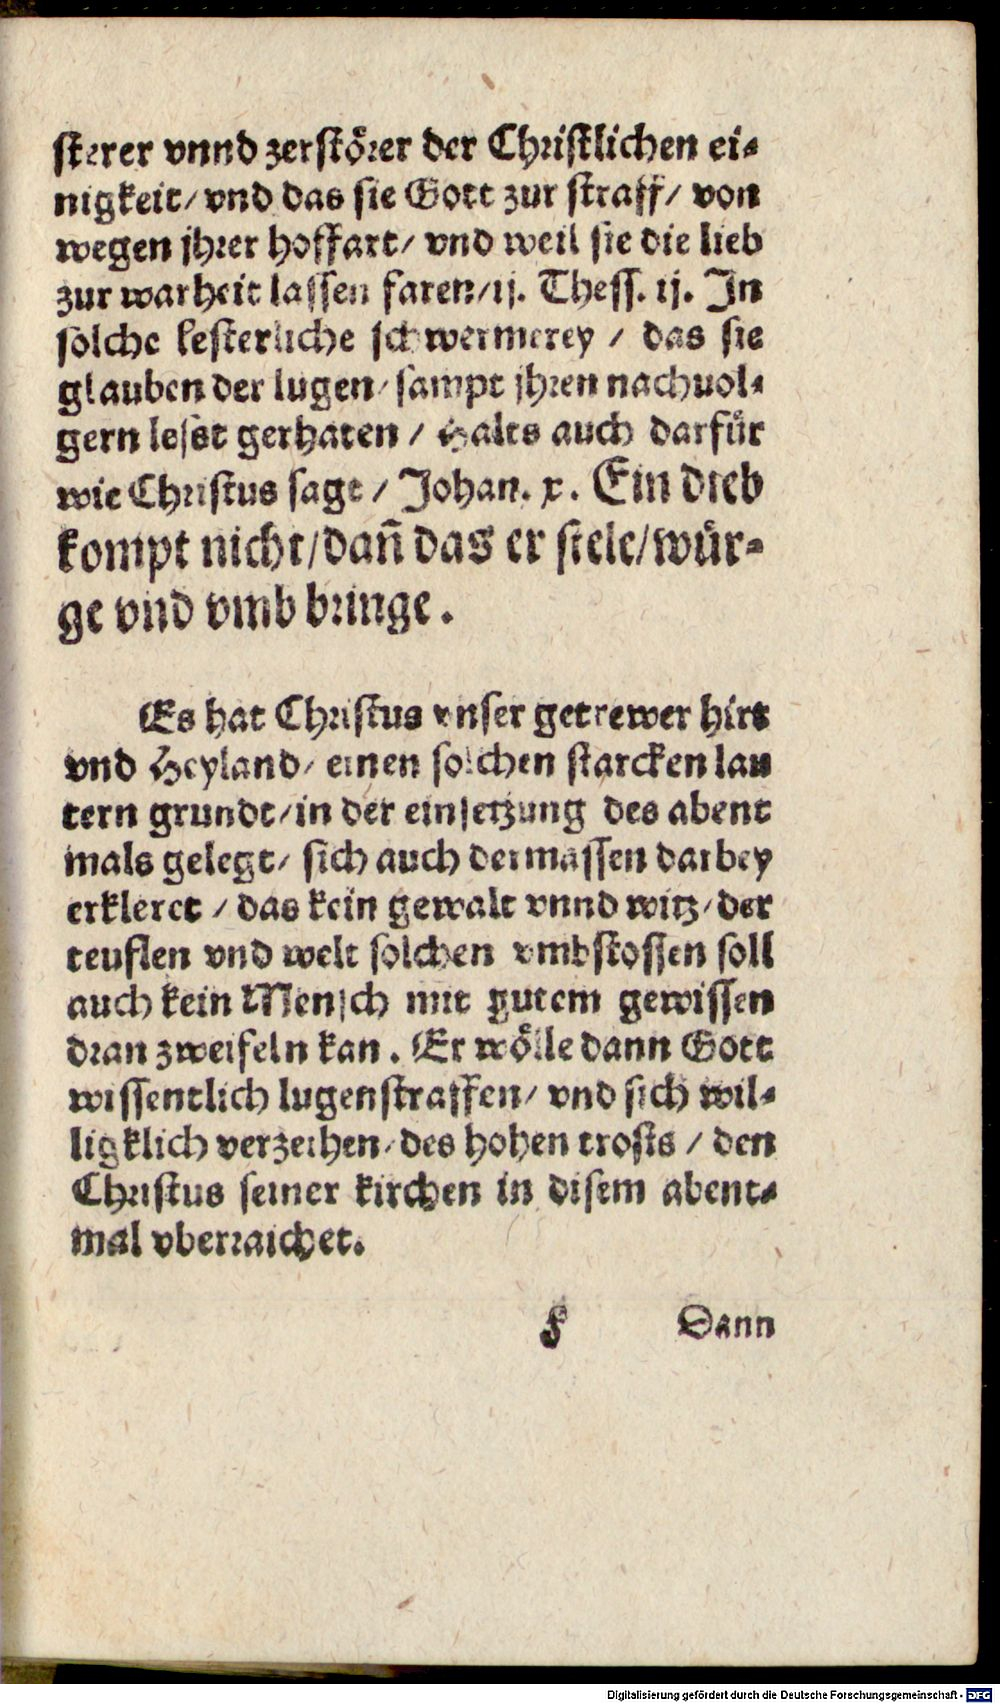 sterer vnnd zerstörer der Christlichen ei-
nigkeit/ vnd das sie Gott zur straff/ von
wegen jhrer hoffart/ vnd weil sie die lieb
zur warheit lassen faren/ij. Thess. ij. In
solche lesterliche schwermerey / das sie
glauben der lugen/ sampt jhren nachuol-
gern lesset gerhaten / Halts auch darfür
wie Christus sagt / Johan. x. Ein dieb
kompt nicht/dañ das er stele/wür-
ge vnd vmb bringe.
Es hat Christus vnser getrewer hirt
vnd Heyland/ einen solchen starcken lau
tern grundt/in der einsetzung des abent
mals gelegt/ sich auch dermassen darbey
erkleret / das kein gewalt vnnd witz/ der
teuflen vnd welt solchen vmbstossen soll
auch kein Mensch mit gutem gewissen
dran zweifeln kan. Er wölle dann Gott
wissentlich lugenstraffen/ vnd sich wil-
ligklich verzeihen/ des hohen trosts / den
Christus seiner kirchen in disem abent-
mal vberraichet.
k Dann
Digitalisierung gefördert durch die Deutsche Forschungsgemeinschaft - DFG